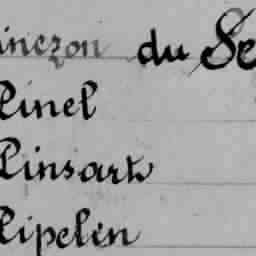 inezon du Se
Pinel
Pinsart
Pipelin